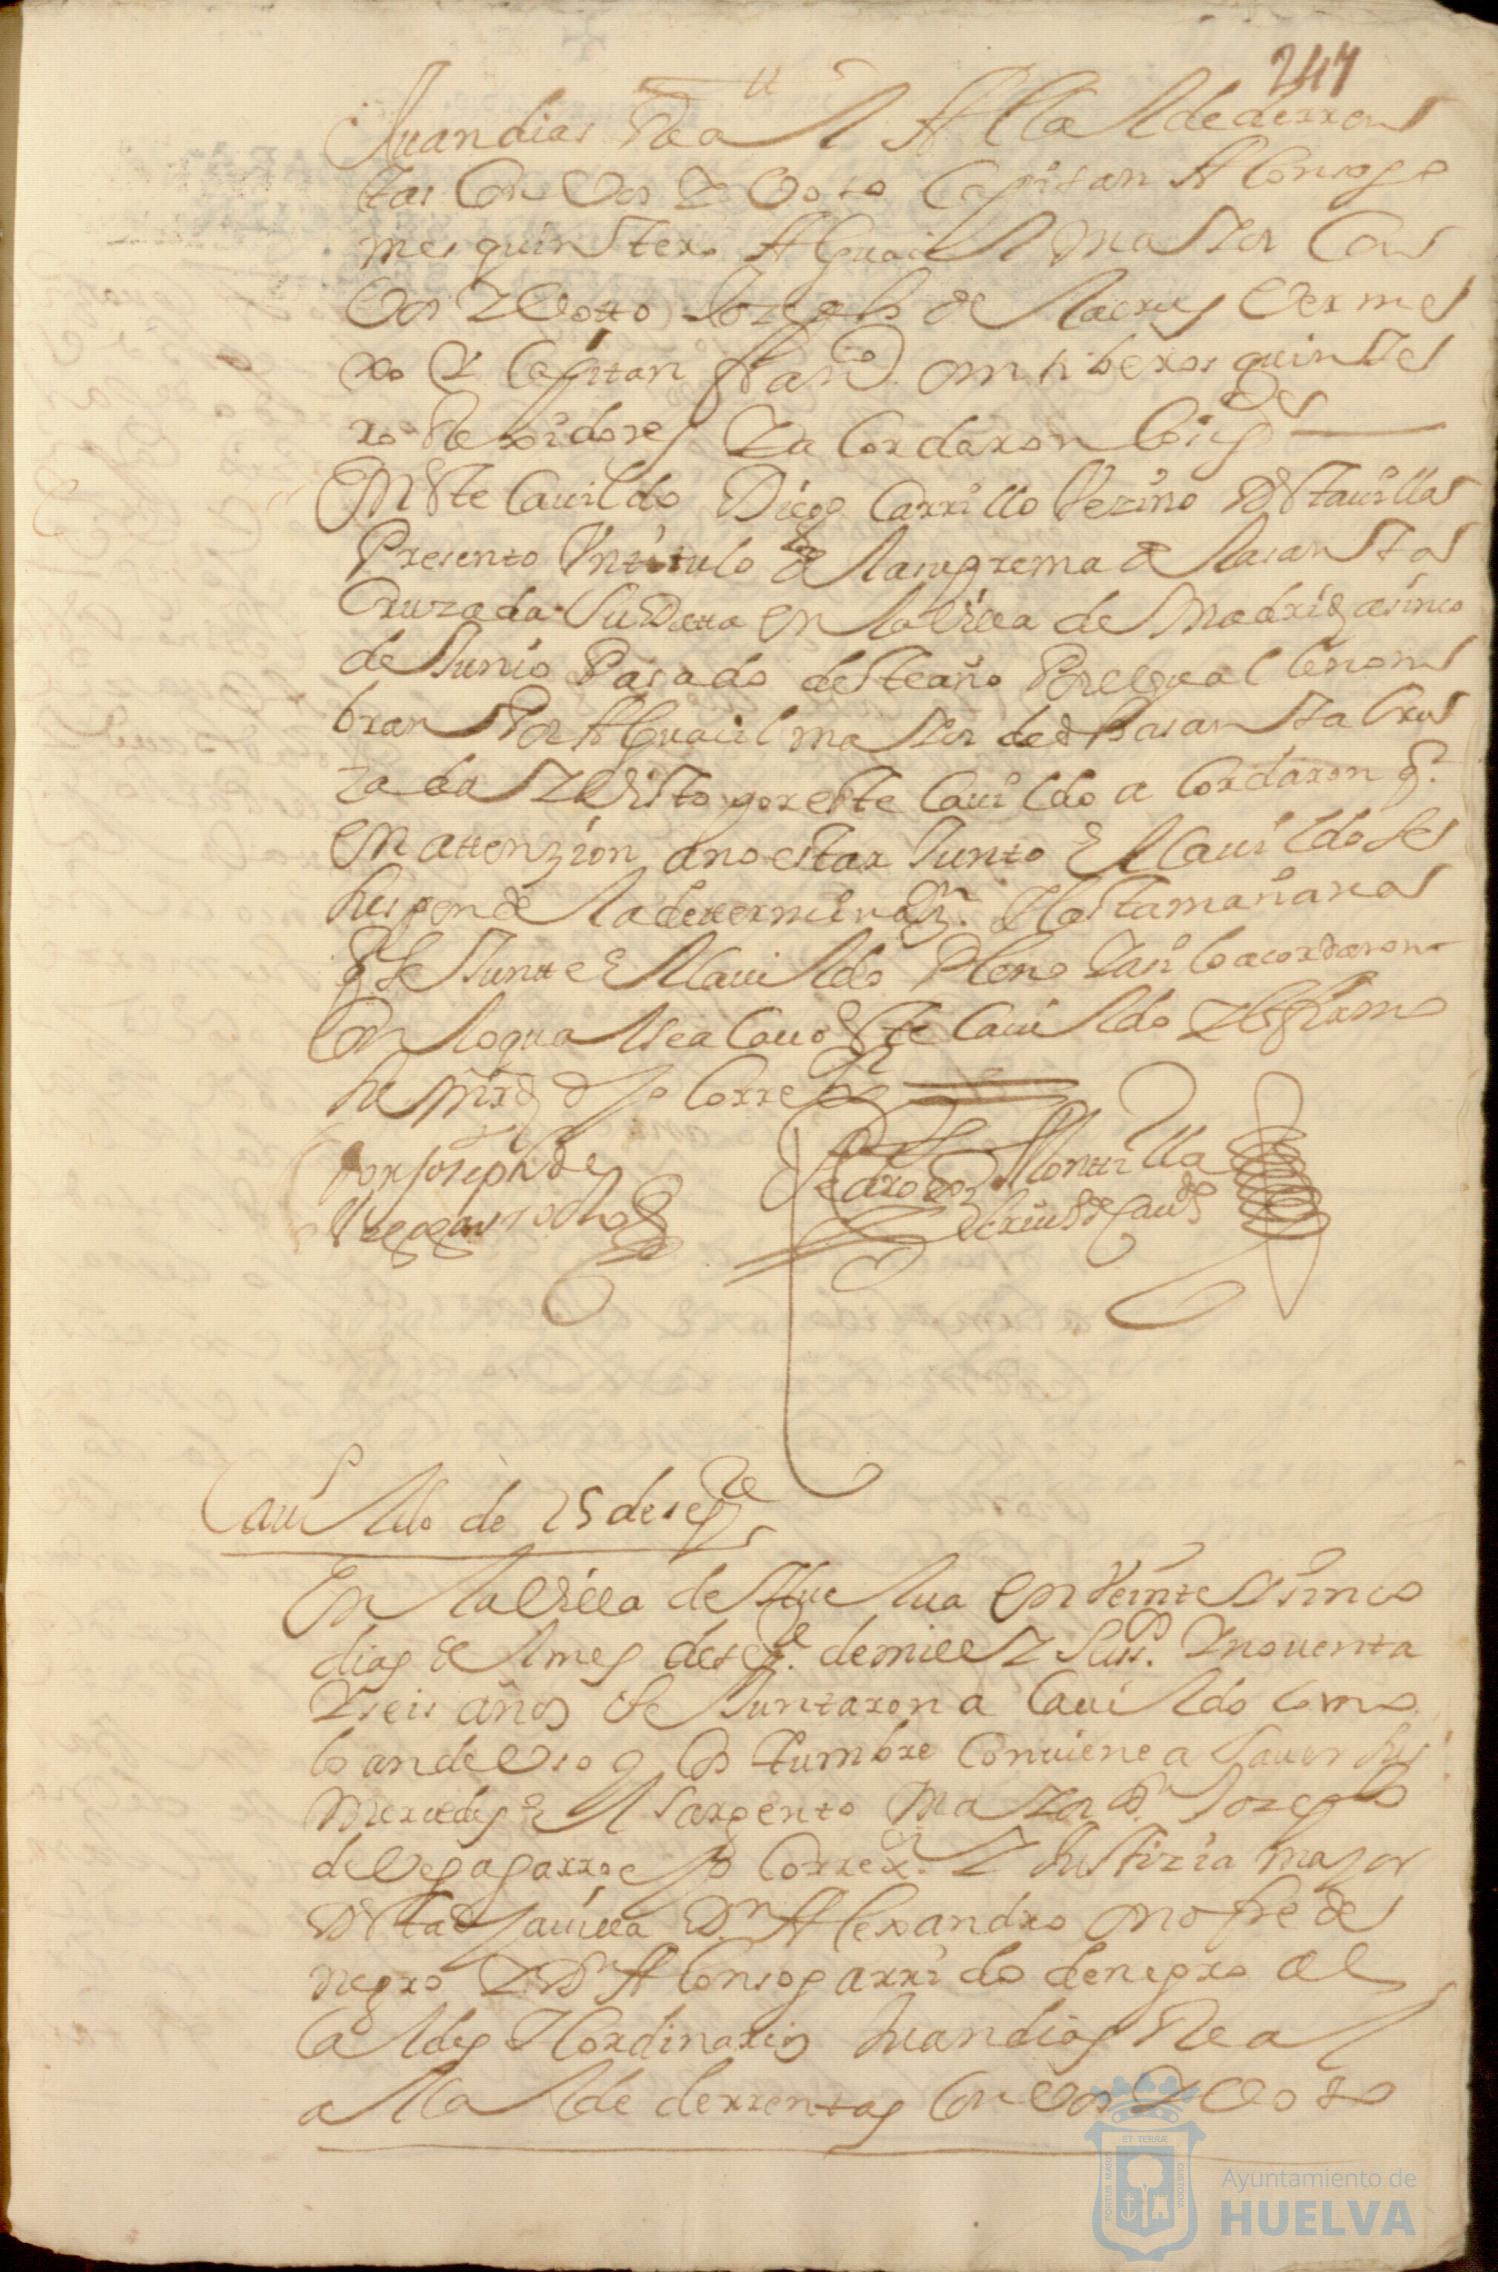 247
Juan dias Real Alcalde de rren
tas Con Vos y Voto Capitan Alonso go
mes quintero Alguacil Mayor Con
Vos y Votto Joseph de la crus Verme
xo y Capitan Franco ontiberos quinte
ro Rexidores y acordaron lo sigte
En este Cauildo Diego Carrillo Vezino desta uilla
Presento Un titulo de la suprema de la santa
Cruzada su Datta en la Villa de Madrid a sinco
de Junio Pasado deste año Por el qual le nom
bran Por Alguacil mayor de dha santa Cru
zada y Visto por este Cauildo acordaron q.
en attenzion a no estar Junto El Cauildo se
suspende la determinazn. hasta mañana
q se Juntte El Cauildo Pleno y asi lo acordaron
Con lo qual se acauo Este Cauildo y lo firmo
su mrd dho Corregr
Don Joseph de
Vega garrocho
Pedro Montilla
escriuo de Cauo
Cauildo de 25 de sepe
En la Villa de Huelua en Veinte y sinco
dias del mes de sepe. de mill y seiss. y nouenta
y seis años se Juntaron a Cauildo como
lo an de Uso y Costumbre Conuiene a sauer sus
Mercedes El Sargento Mayor Dn Joseph
de Vega garrocho Correxr. y Justizia mayor
Desta dha uilla Dn Alexandro onofre de
negro y Dn Alonso garrido de negro al
Caldes Hordinarios Juan dias Real
alcalde de rrentas Con Vos y Voto
PORTUS MARIS
ET TERRÆ
CUSTODIA
Ayuntamiento de
HUELVA